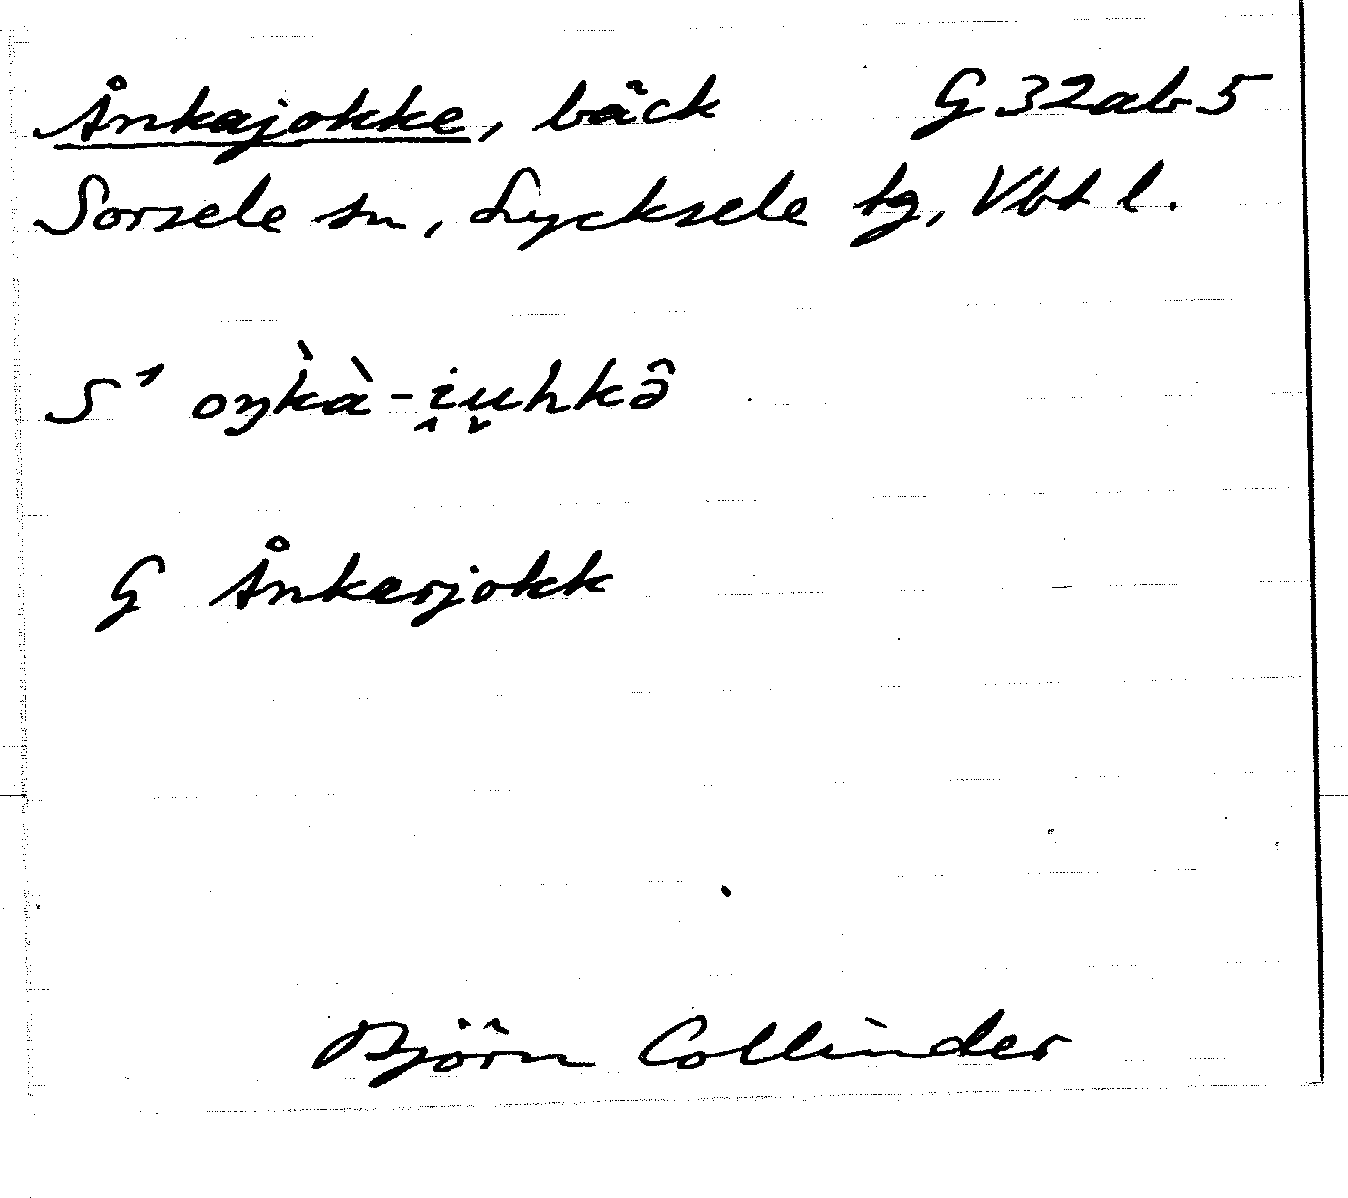 Ånkajokke, bäck G 32ab5
Sorsele sn, Lycksele tg, Vbt l.
S¹ oŋk̀à-i̭u̮hkə̂
G Ånkerjokk
Björn Collinder